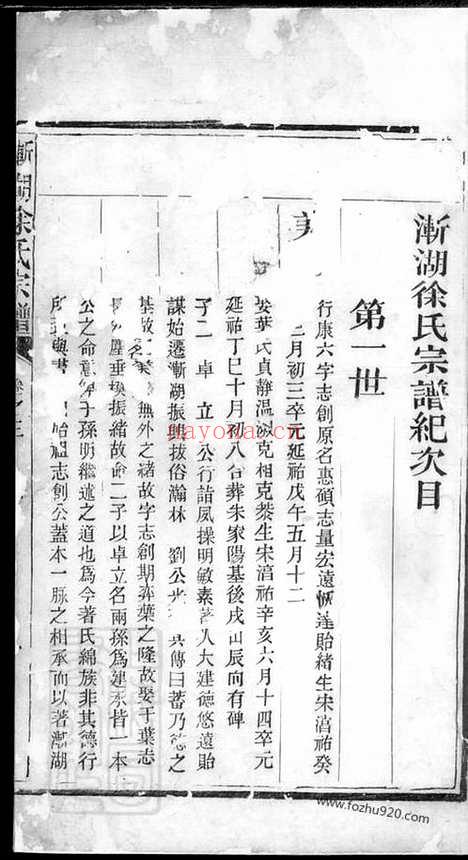 漸湖徐氏宗譜紀次目
第一世
行康六字志創原名惠碩志量宏遠恢達貽緒生宋淳祐癸
二月初三卒元延祐戊午五月十二
娶葉氏貞靜溫淑克相克棻生宋淳祐辛亥六月十四卒元
延祐丁巳十月初八合葬朱家陽基後戌山辰向有碑
子二 卓立 公行誼風操明敏素著人大建德悠遠貽
謀始遷漸湖振興拔俗瀚林 劉公 傳曰蓄乃德之
基故 無外之緒故字志創期奕葉之隆故娶于葉志
塵垂 振緒故命二子以卓立名兩孫為建永皆一本
公之命意 子孫明繼述之道也為今著氏綿族非其德行
與 始祖志創公蓋本一脉之相承而以著漸湖
漸湖徐氏宗譜 卷之三
nayona.cn
www.fozhu920.com